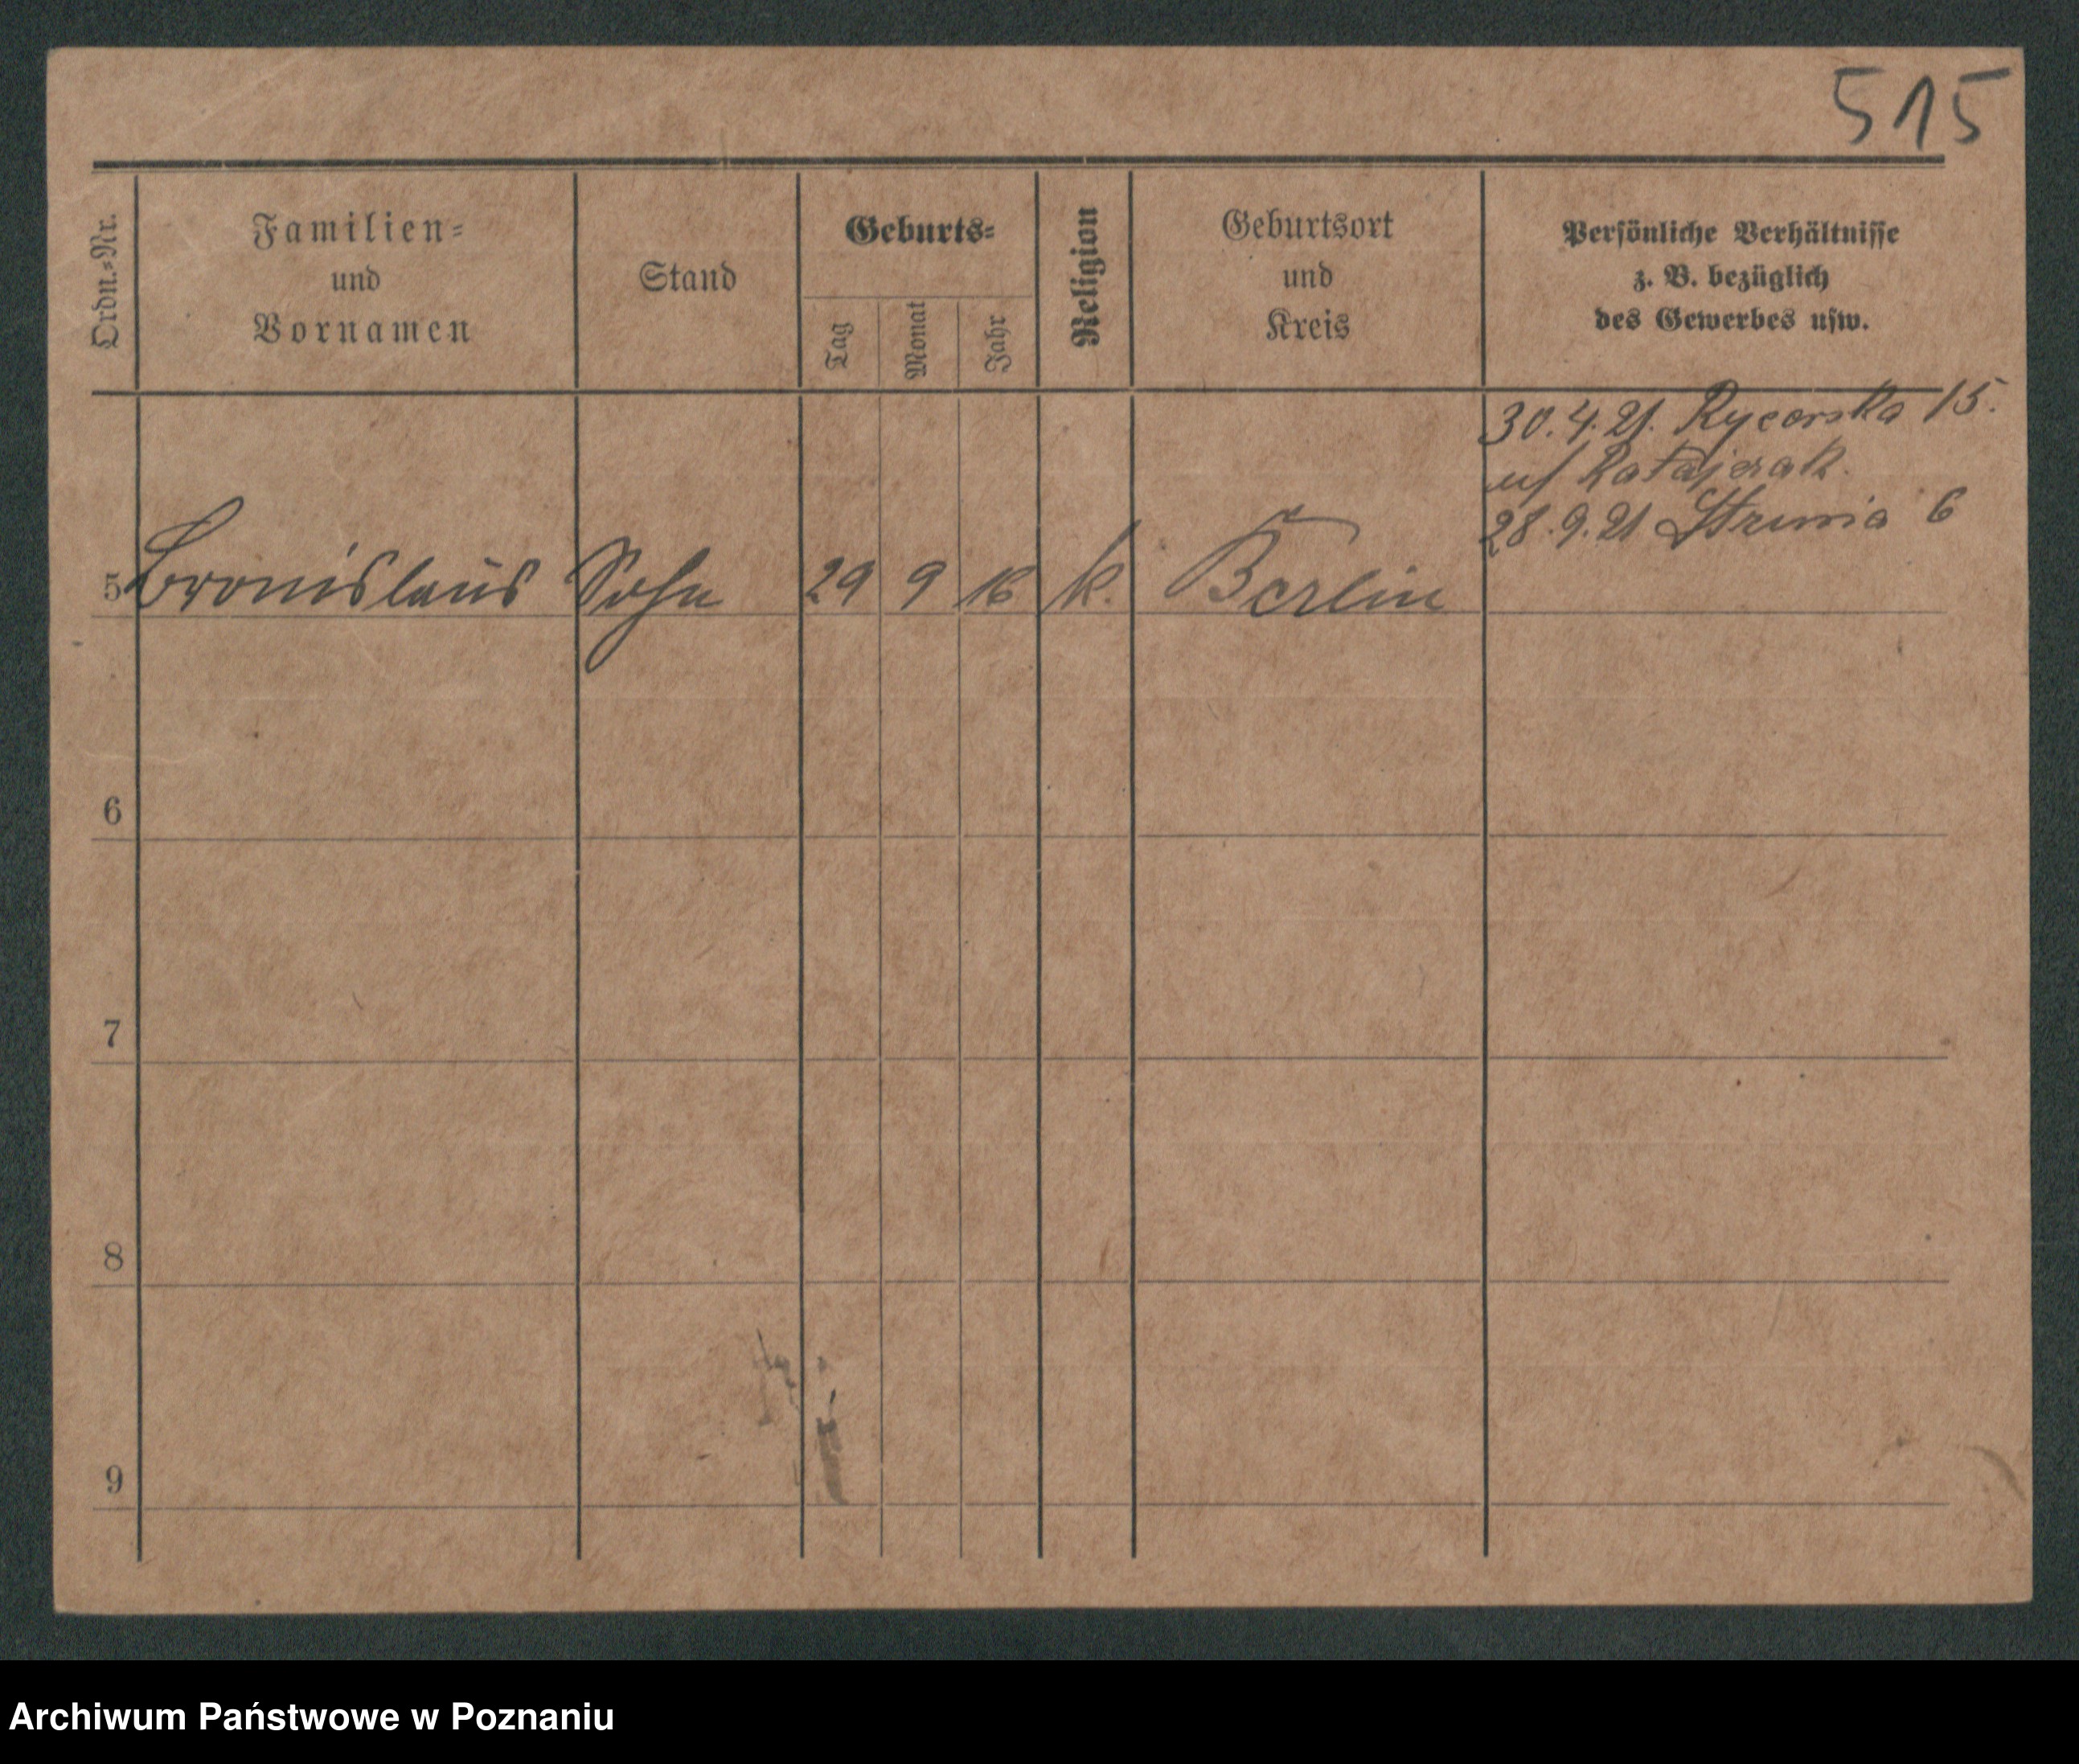 515
Ordn.-Nr.
Familien-
und
Vornamen
Stand
Geburts-
Tag
Monat
Jahr
Religion
Geburtsort
und
Kreis
Persönliche Verhältnisse
z. B. bezüglich
des Gewerbes usw.
30.4.21. Rycerska 15.
Ratajczak.
28.9.21 6
5 Bronislaus Sohn 29 9 16 k. Berlin
6
7
8
9
Archiwum Państwowe w Poznaniu